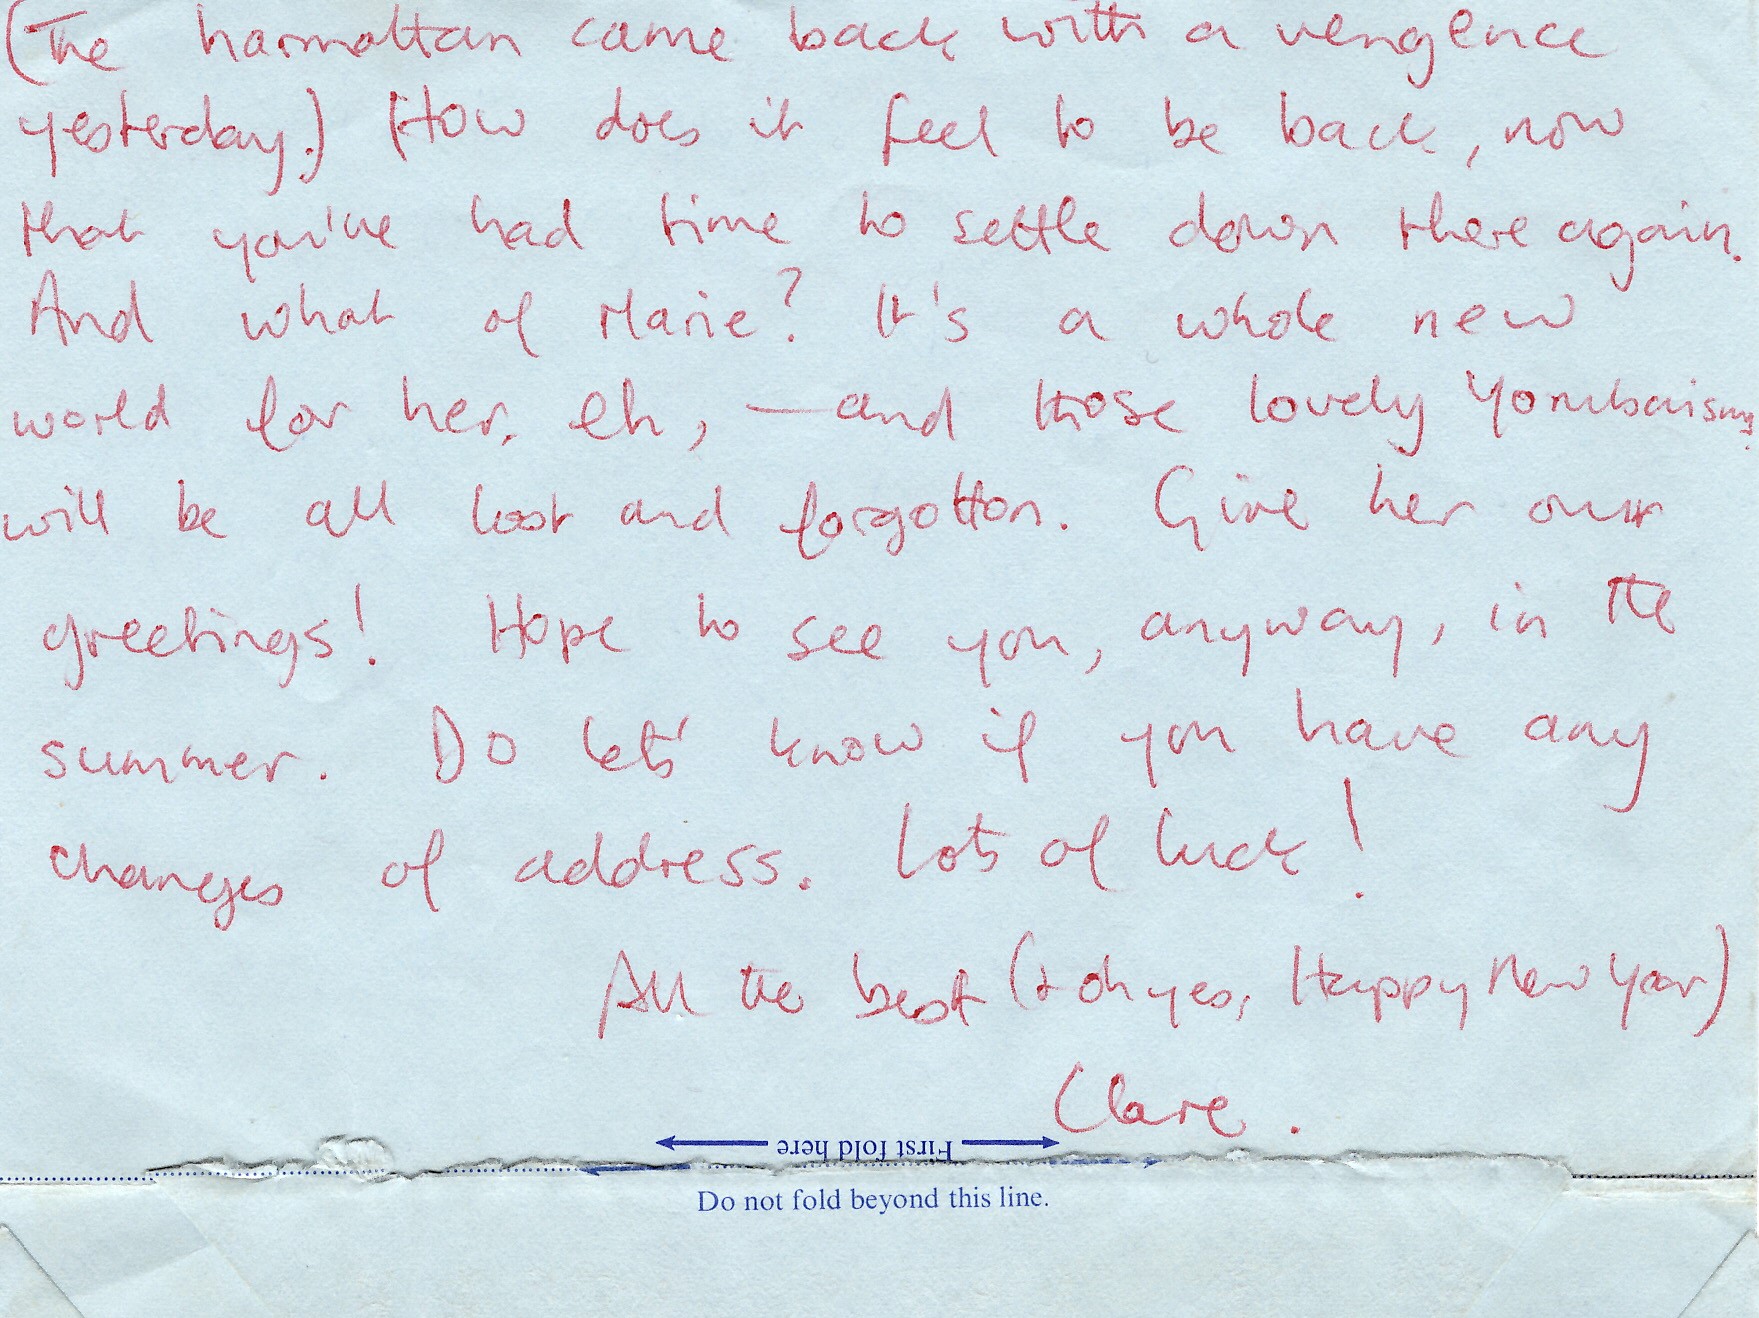 (The harmattan came back with a vengence
yesterday.) How does it feel to be back, now
that you've had time to settle down there again.
And what of Marie? It's a whole new
world for her, eh, — and those lovely Yorubaisms
will be all lost and forgotton. Give her our
greetings! Hope to see you, anyway, in the
summer. Do let's know if you have any
changes of address. Lots of luck!
All the best (& oh yes, Happy New Year)
Clare.
First fold here
Do not fold beyond this line.